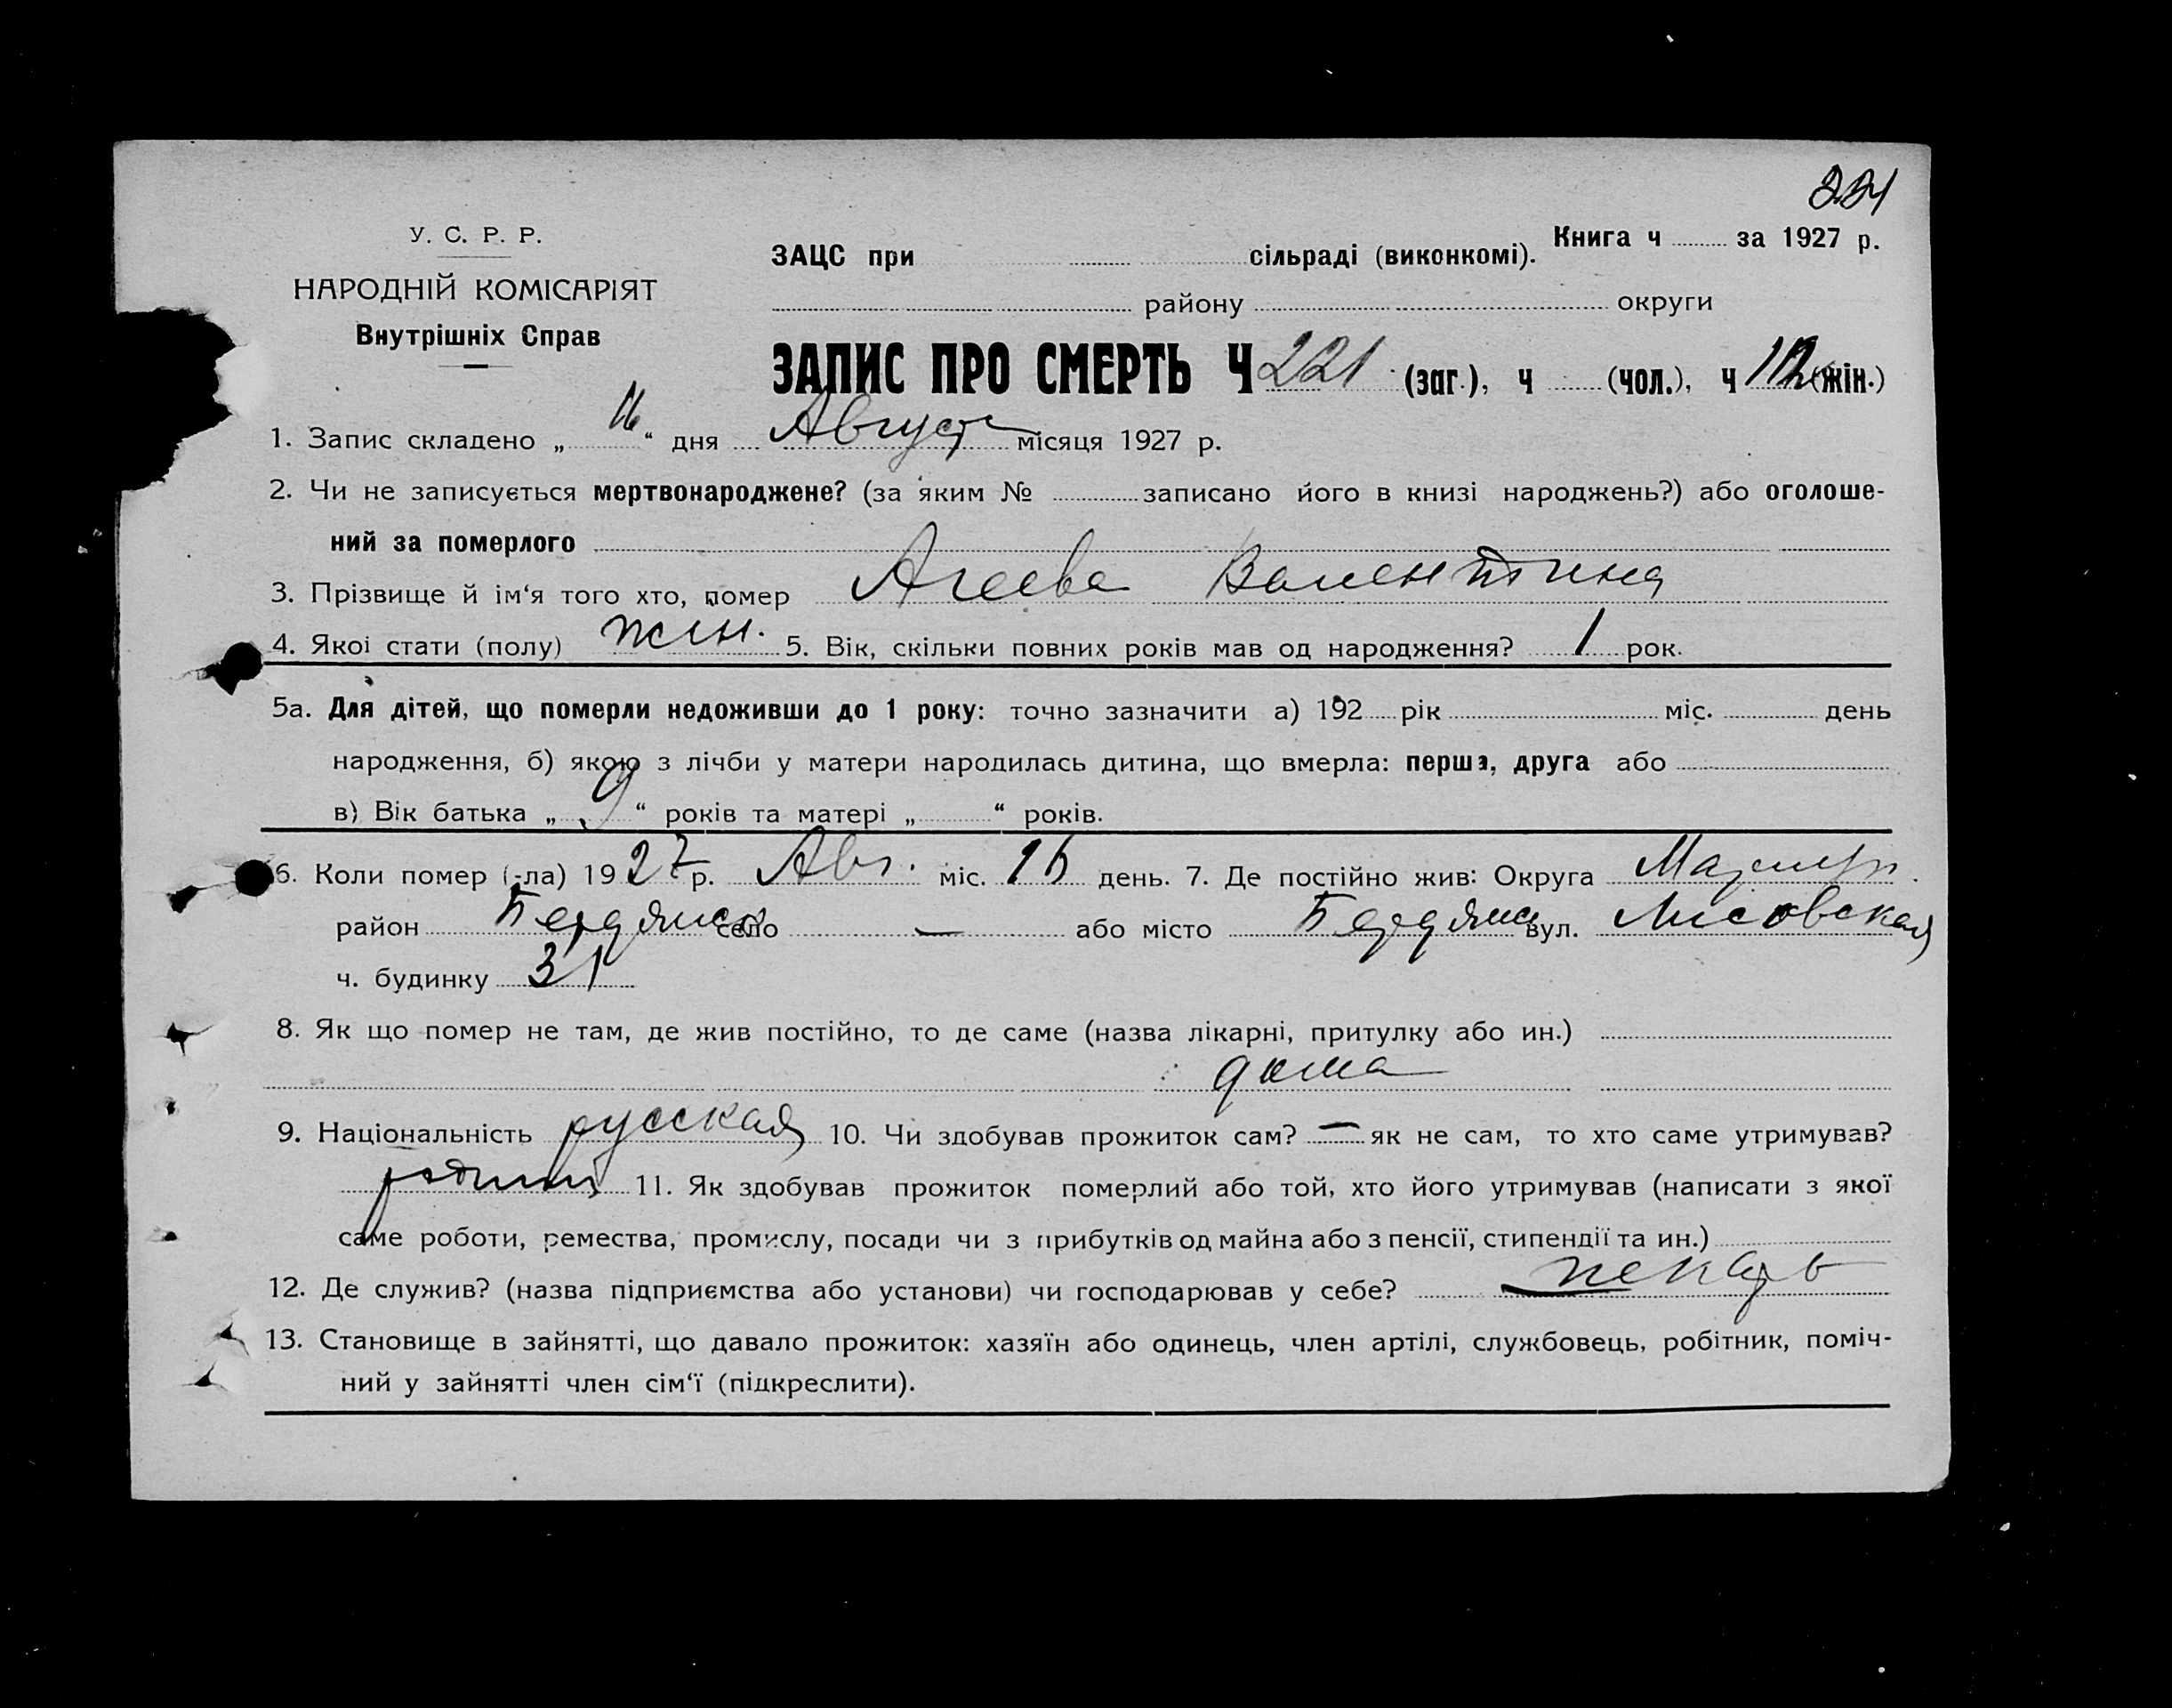 221
У. С. Р. Р.
НАРОДНІЙ КОМІСАРІЯТ
Внутрішніх Справ
ЗАЦС при сільраді (виконкомі). Книга ч за 1927 р.
району округи
ЗАПИС ПРО СМЕРТЬ Ч 221 (заг.), ч (чол.), ч 112 (жін.)
1. Запис складено „16“ дня Августа місяця 1927 р.
2. Чи не записується мертвонароджене? (за яким № записано його в книзі народжень?) або оголоше-
ний за померлого
3. Прізвище й ім‘я того хто, помер Агеева Валентина
4. Якої стати (полу) жін. 5. Вік, скільки повних років мав од народження? 1 рок.
5а. Для дітей, що померли недоживши до 1 року: точно зазначити а) 192 рік міс. день
народження, б) якою з лічби у матери народилась дитина, що вмерла: перша, друга або
в) Вік батька „ “ років та матері „ “ років.
6. Коли помер (-ла) 1927 р. Авг. міс. 15 день. 7. Де постійно жив: Округа Мариуп.
район Бердянск село — або місто Бердянск вул. Лисовская
ч. будинку 31
8. Як що помер не там, де жив постійно, то де саме (назва лікарні, притулку або ин.)
дома
9. Національність русская 10. Чи здобував прожиток сам? — як не сам, то хто саме утримував?
11. Як здобував прожиток померлий або той, хто його утримував (написати з якої
саме роботи, ремества, промислу, посади чи з прибутків од майна або з пенсії, стипендії та ин.)
12. Де служив? (назва підприємства або установи) чи господарював у себе? пекарь
13. Становище в зайнятті, що давало прожиток: хазяїн або одинець, член артілі, службовець, робітник, поміч-
ний у зайнятті член сім‘ї (підкреслити).